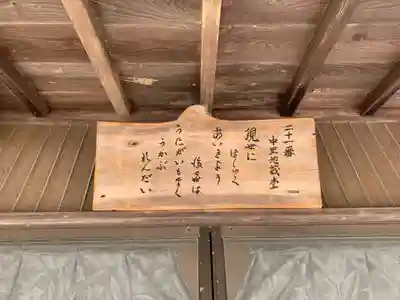 二十一番
中里地蔵堂
現世に
はしゅく
あいきよう
後世は
うたがいもなく
うかぶ
れんだい